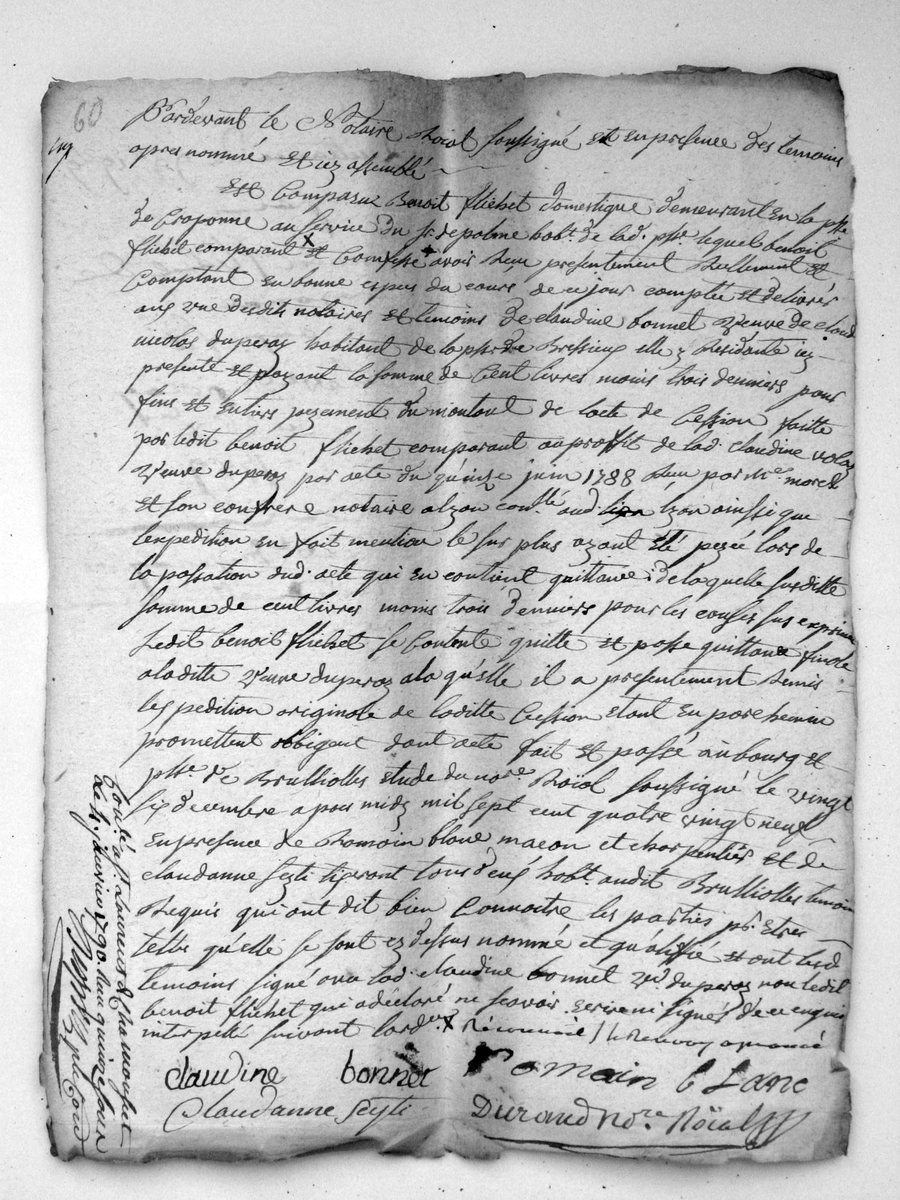 60
Pardevant le Notaire Roial soussigné et en presence des temoins
apres nommé et icy assemblé
Est Comparu Benoit flichet domestique demeurant en la psse
de Craponne au service du sr depalme habt. de lad. psse. lequel benoit
flichet comparant x et Confesse avoir Reçu presentement Reellement et
Comptant en bonne espece du cours de ce jour comptée et delivrés
aux vue desdit notaires et temoins de claudine bonnet Veuve de claud
nicolas duperaz habitant de la psse de Bressieu elle y Residante icy
presente et payant la somme de Cent livres moins trois deniers pour
fins et entiers payement du montant de lacte de Cession faitte
par ledit benoit flichet comparant au proffit de lad. claudine
Veuve duperaz par acte du quinze juin 1788 Reçu par Me. morel
et son confrere notaire a lyon conllé aud. lyon ainsi que
lexpedition en fait mention le sur plus ayant eté payée lors de
la passation dud. acte qui en contient quittance: de laquelle susditte
somme de cent livres moins trois denniers pour les causes sus exprimé
Ledit benoit flichet se Contente quitte et passe quittance finale
a laditte Veuve duperaz a laquelle il a presentement Remis
lexpedition originale de laditte Cession etant en parchemin
promettent obbigeant dont acte fait et passé au bourg et
psse. de Brulliolles etude du nore. Roïal soussigné le vingt
six decembre apres midy mil sept cent quatre vingt neuf
en presence de Romain blanc macon et charpentiés et de
claudanne seyti tisserant tous deux habt. audit Brulliolles temoin
Requis qui ont dit bien Connoitre les parties pr. etres
telle quelle se sont cy dessus nommé et qualifié et ont lesd.
temoins signé avec lad. claudine bonnet Ve. duperaz non ledit
benoit flichet qui a déclaré ne scavoir ecrire ni signés de ce enquis
interpellé suivant lord.ce x Reconnoit / le Renvoy approuvé
claudine bonnet Romain blanc
Claudanne Seyti Durand Nore. Roïal
Conlé a St. Laurent de Chamousset
Le 4. Janvier 1790. Reçu quinze sous